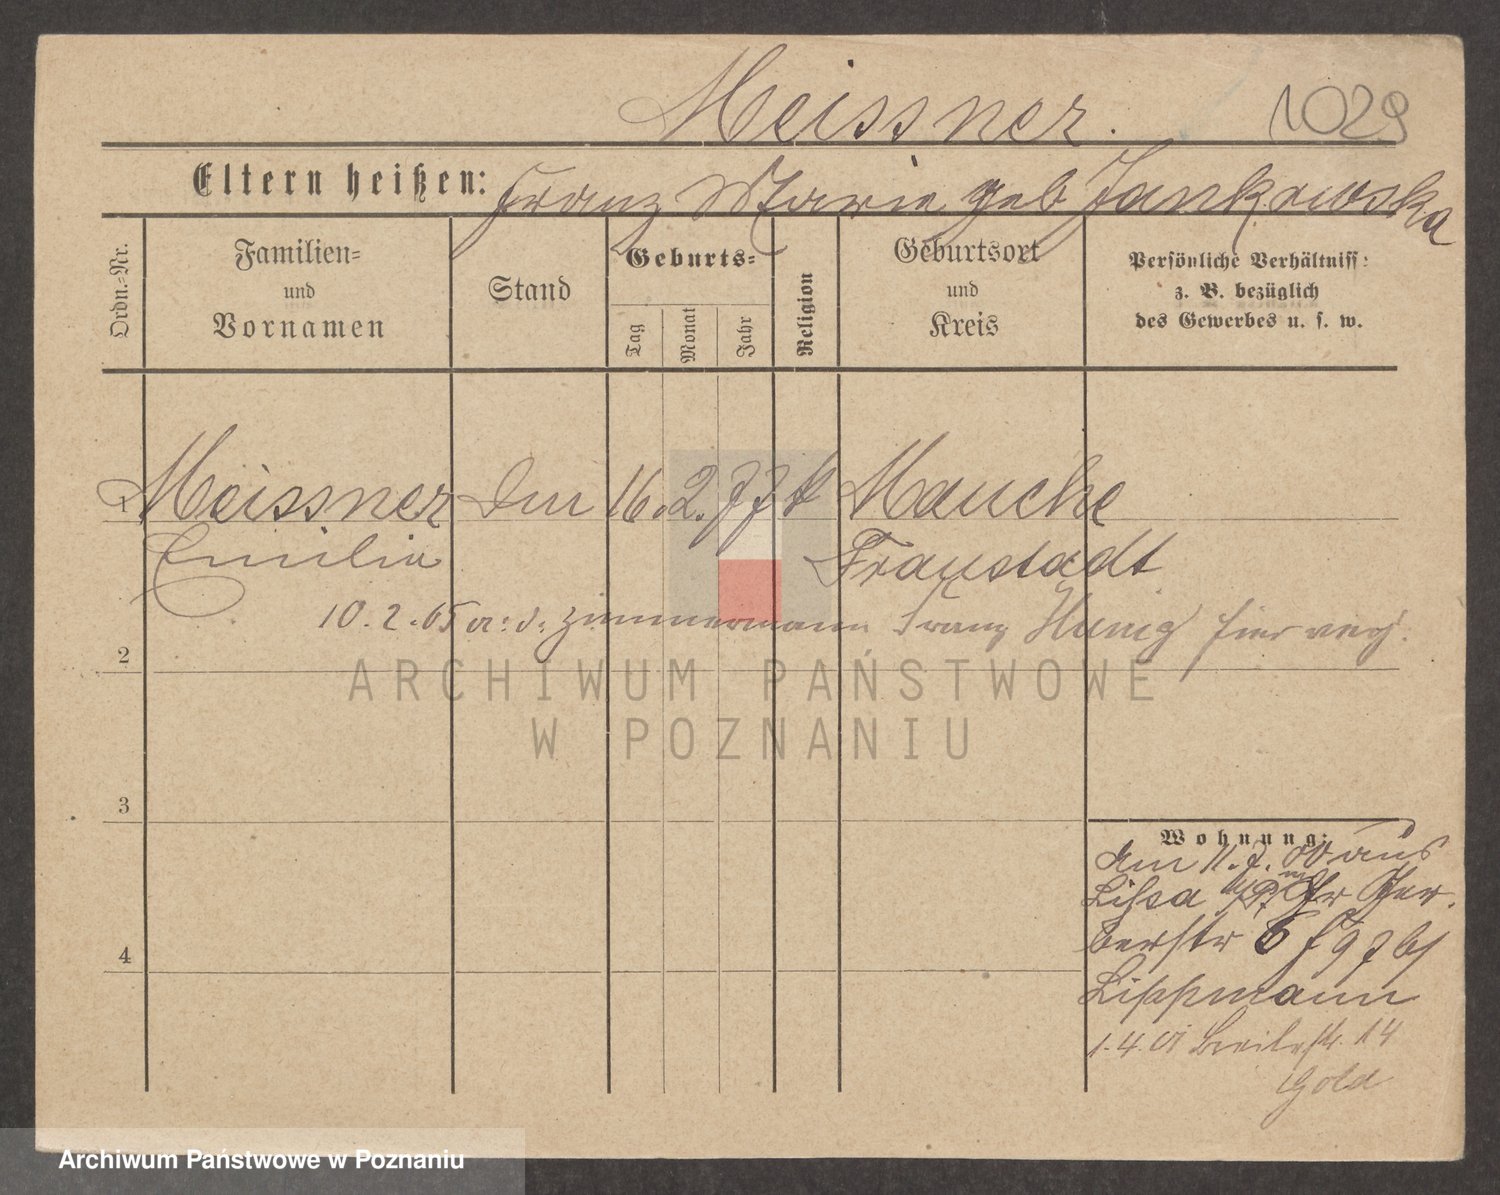 Meissner.
1029
Eltern heißen: Franz Marie geb Jankowska
Ordn.-Nr.
Familien-
und
Vornamen
Stand
Geburts-
Tag
Monat
Jahr
Religion
Geburtsort
und
Kreis
Persönliche Verhältniss:
z. B. bezüglich
des Gewerbes u. s. w.
1 Meissner 16. 2. 77 k Mauche
Emilie Fraustadt
10. 2. 05 Zimmermann Franz Hunig hier
2
ARCHIWUM PAŃSTWOWE
W POZNANIU
3
4
Wohnung:
am 11. 7. 00 aus
Lissa Ger-
berstr 6
Lippmann
1. 4. 01 14
Gold
Archiwum Państwowe w Poznaniu